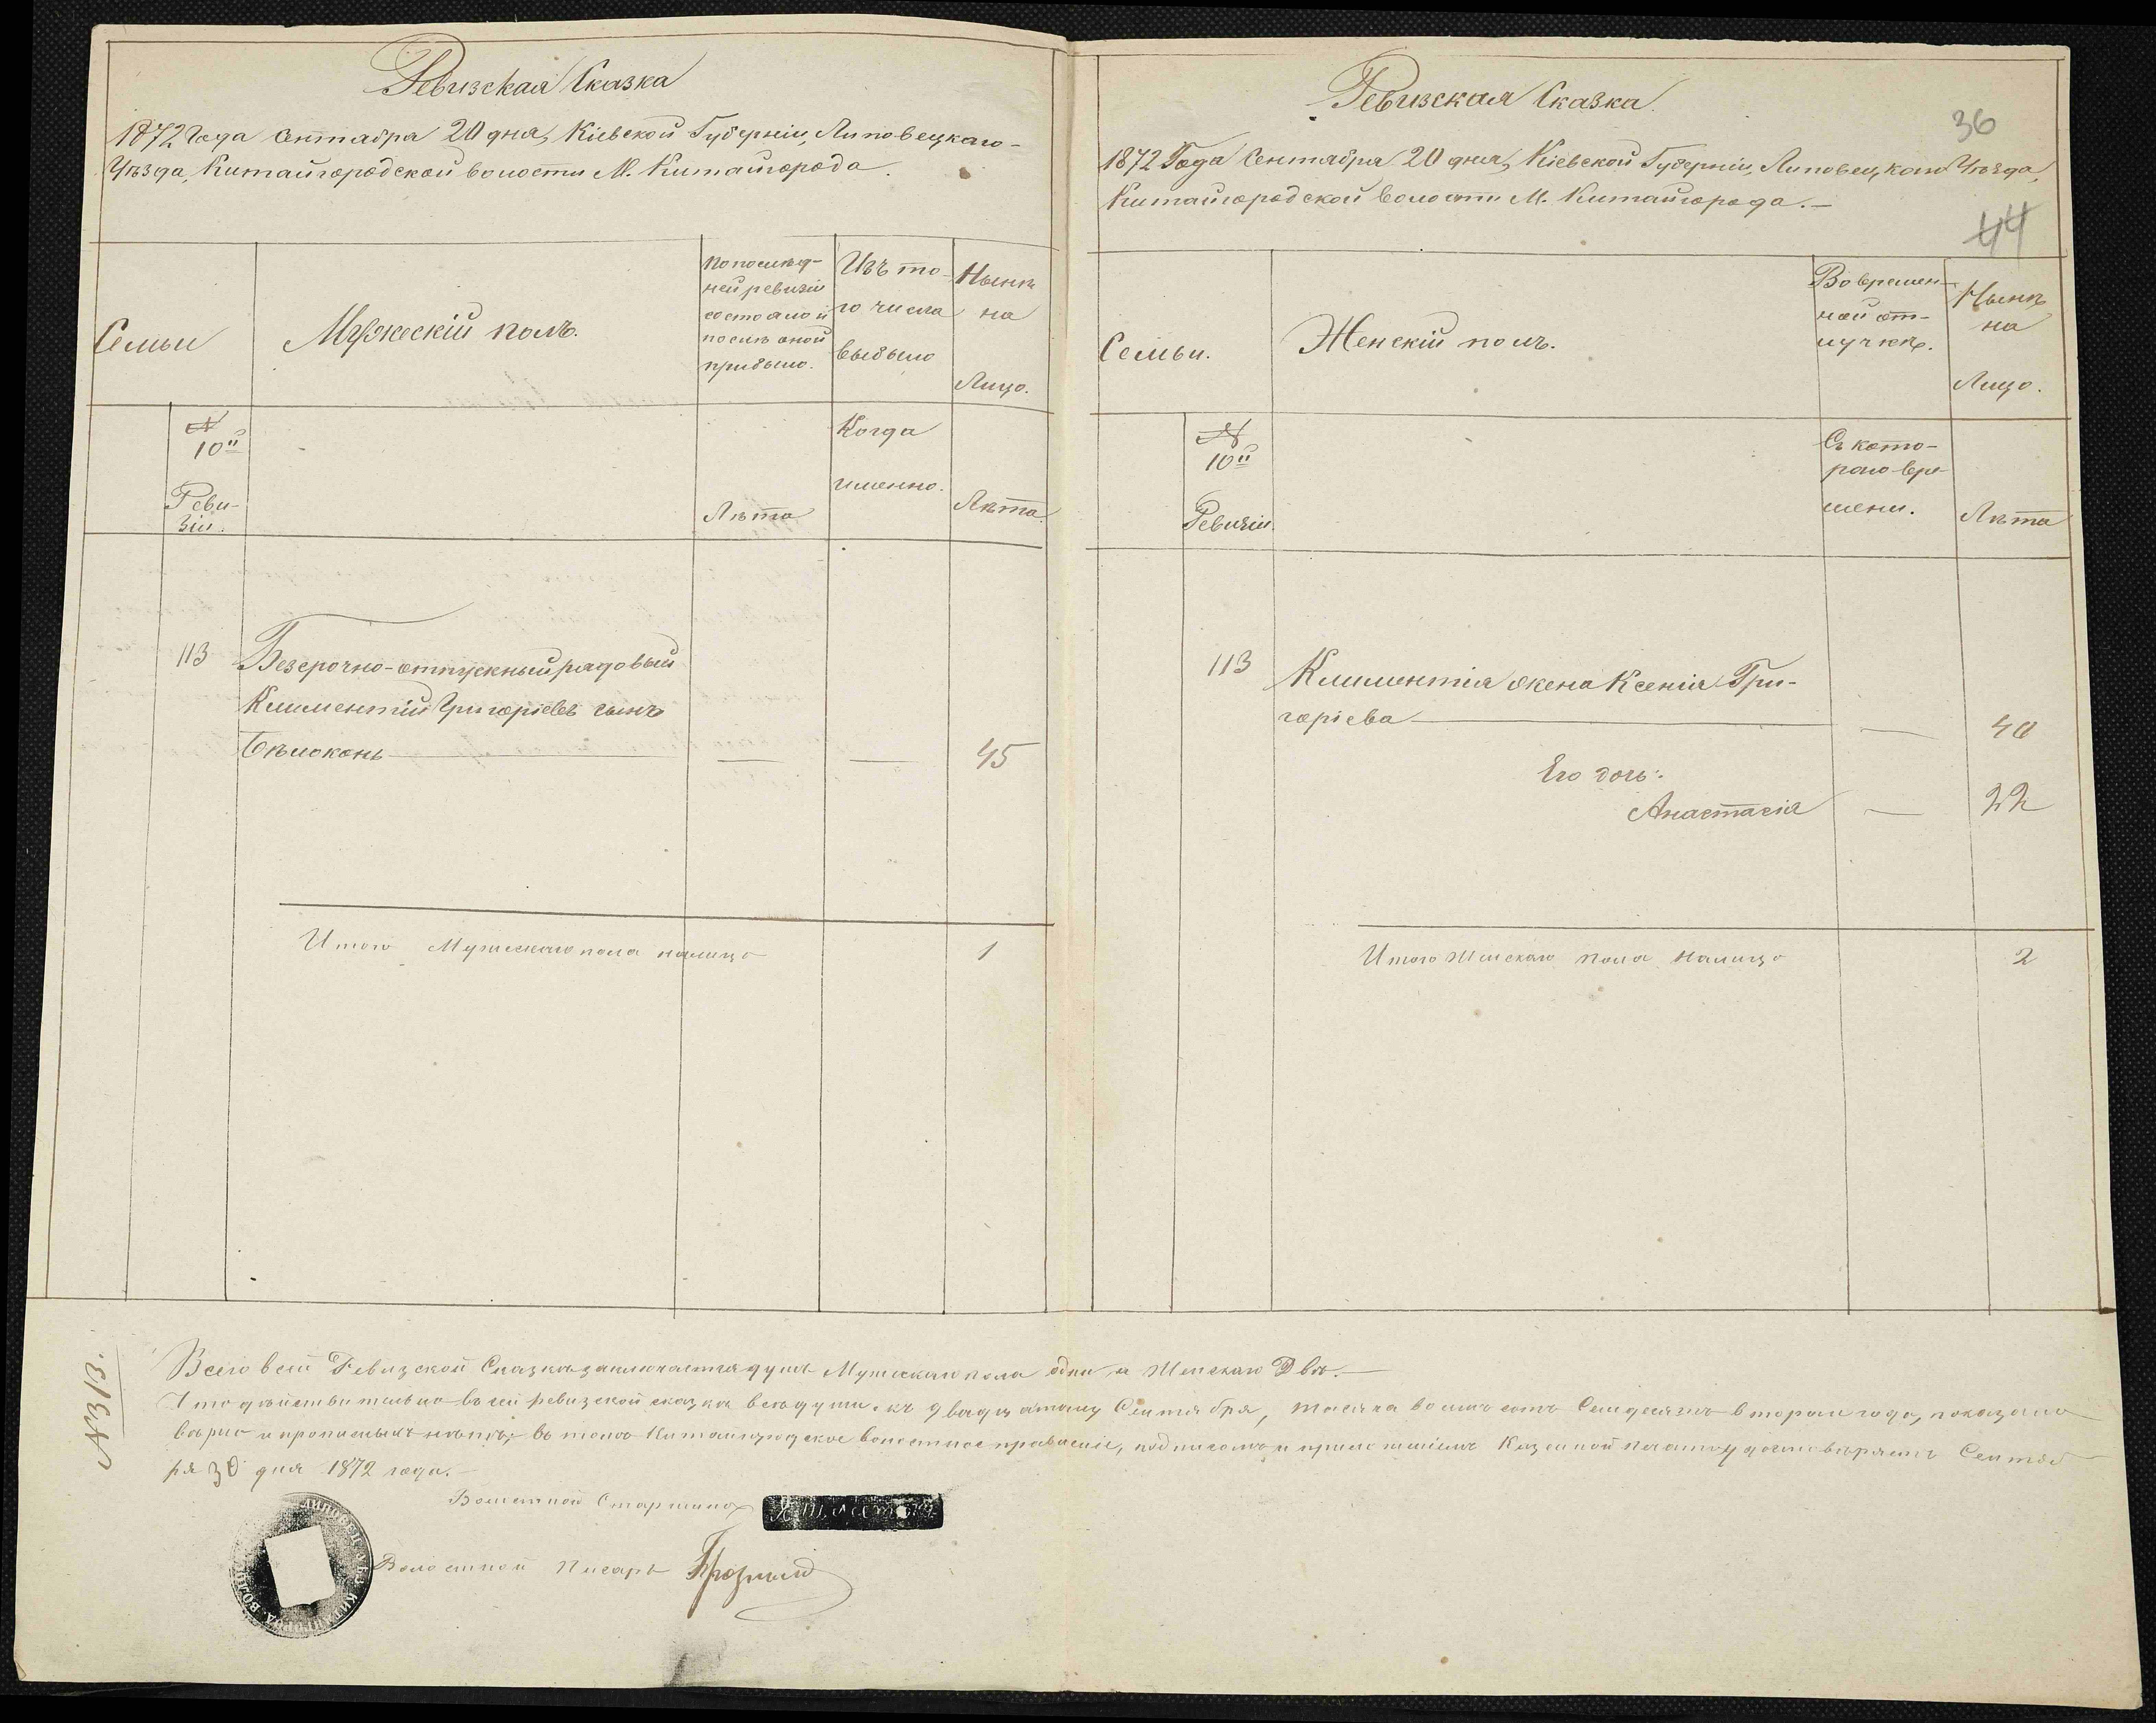 Ревизская Сказка
1872 Года Сентября 20 дня, Кіевской Губерніи, Липовецкаго
Уѣзда, Китайгородской волости М. Китайгорода.
Семьи
Мужескій полъ.
По послѣд-
ней ревизіи
состояло и
послѣ оной
прибыло.
Изъ то-
го числа
выбыло
Нынѣ
на
Лицо.
№
10й
Реви-
зіи.
Лѣта
Когда
именно.
Лѣта.
113 Безсрочно-отпускный рядовый
Климентій Григоріевъ сынъ
Бѣлоконь — — — 45
Итого Мужескаго пола налицо 1
Ревизская Сказка.
36
1872 Года Сентября 20 дня, Кіевской Губерніи, Липовецкаго Уѣзда,
Китайгородской волости М. Китайгорода.—
44
Семьи.
Женскій полъ.
Во времен-
ной от-
лучкѣ.
Нынѣ
на
Лицо.
№
10й
Ревизіи.
Съ кото-
раго вре-
мени.
Лѣта
113 Климентія жена Ксенія Гри-
горіева — — 40
Его дочь:
Анастасія — 22
Итого Женскаго пола налицо 2
№313.
Всего в сей Ревизской Сказкѣ заключается душъ Мужескаго пола одна, а Женскаго Двѣ.—
Что дѣйствительно въ сей ревизской сказкѣ всѣ души къ двадцатому Сентября, тысяча восемь сотъ Семдесятъ втораго года, показано
вѣрно и прописныхъ нѣтъ; въ томъ Китайгородское волостное правленіе, подписомъ и приложеніемъ Казенной печати удостовѣряетъ Сентяб
ря 30 дня 1872 года.—
Волостной Старшина
Волостной Писарь